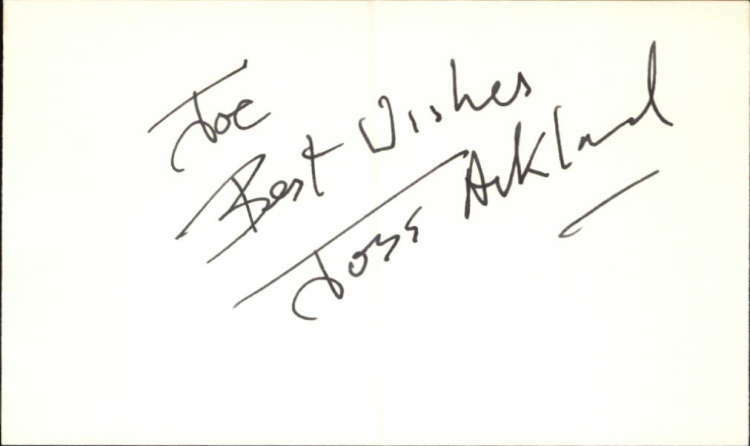 Joe
Best Wishes
Joss Ackland